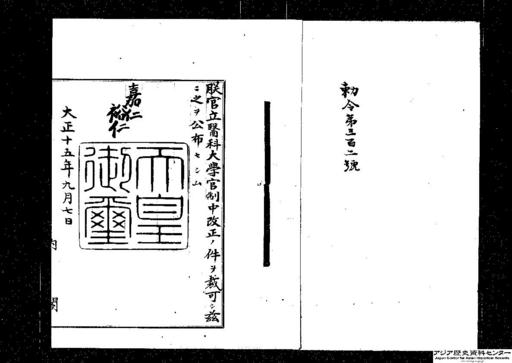 勅令第三百二號
朕官立醫科大學官制中改正ノ件ヲ裁可シ茲
ニ之ヲ公布セシム
嘉仁
裕仁
天皇
御璽
大正十五年九月七日
内閣
アジア歴史資料センター
Japan Center for Asian Historical Records